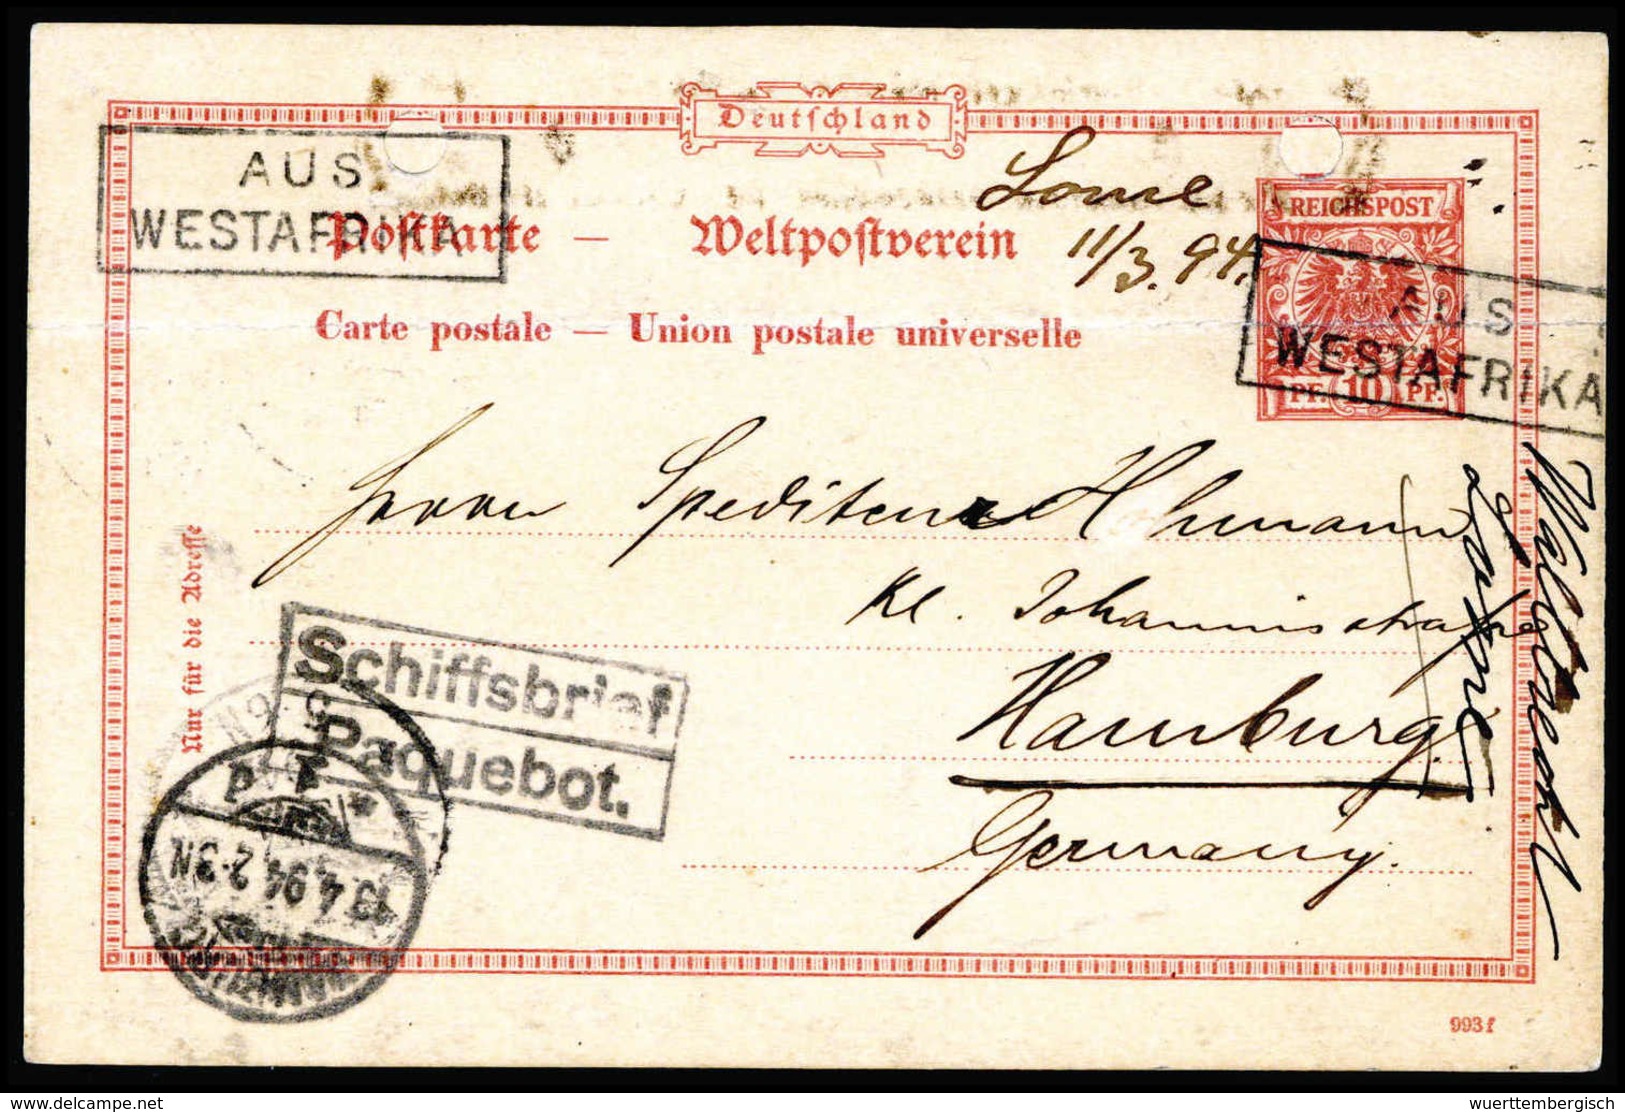 Deutschland
AUS
WESTAFRIKA
Lome
11/3.94.
REICHSPOST
Postkarte — Weltpostverein
Carte postale — Union postale universelle
AUS
WESTAFRIKA
PF. 10 PF.
Herrn Spediteur Hohmann
Kl. Johannisstraße
Hamburg
Germany.
Nur für die Adresse
Schiffsbrief
Paquebot.
13.4.94.2-3N.
993f
wuerttembergisch
delcampe.net